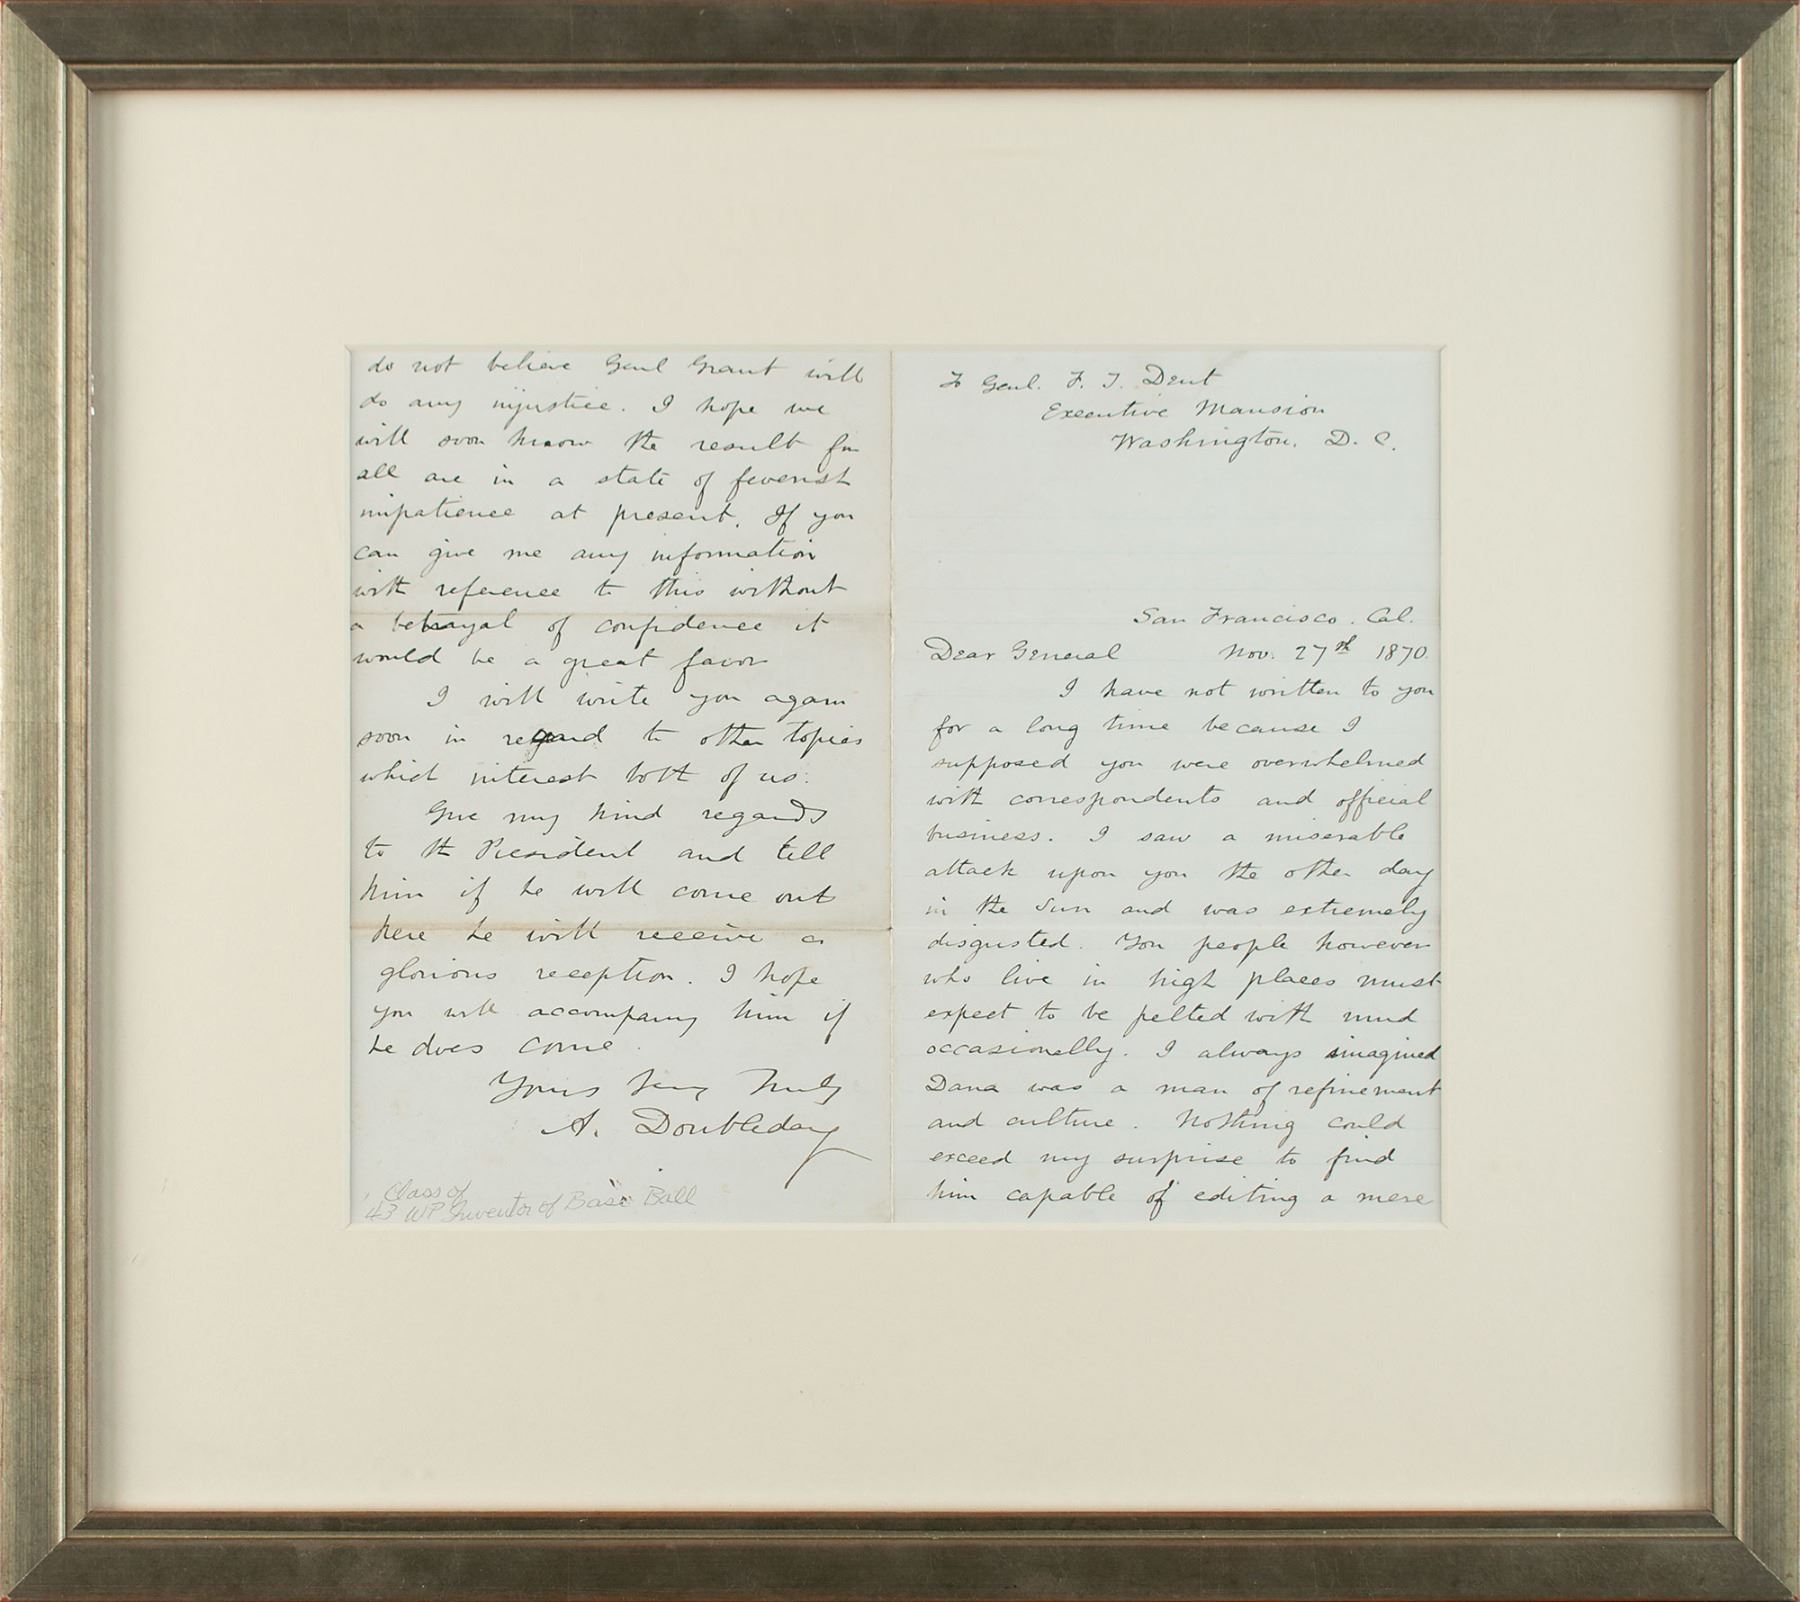 do not believe Genl Grant will
do any injustice. I hope we
will soon know the result for
all are in a state of feverish
impatience at present. If you
can give me any information
with reference to this without
a betrayal of confidence it
would be a great favor
I will write you again
soon in regard to other topics
which interest both of us.
Give my kind regards
to the President and tell
him if he will come out
here he will receive a
glorious reception. I hope
you will accompany him if
he does come.
Yours Very Truly
A. Doubleday
Class of
43 WP Inventor of Base Ball
To Genl. F. T. Dent
Executive Mansion
Washington, D. C.
San Francisco. Cal.
Dear General Nov. 27th 1870.
I have not written to you
for a long time because I
supposed you were overwhelmed
with correspondents and official
business. I saw a miserable
attack upon you the other day
in the Sun and was extremely
disgusted. You people however
who live in high places must
expect to be pelted with mud
occasionally. I always imagined
Dana was a man of refinement
and culture. Nothing could
exceed my surprise to find
him capable of editing a mere